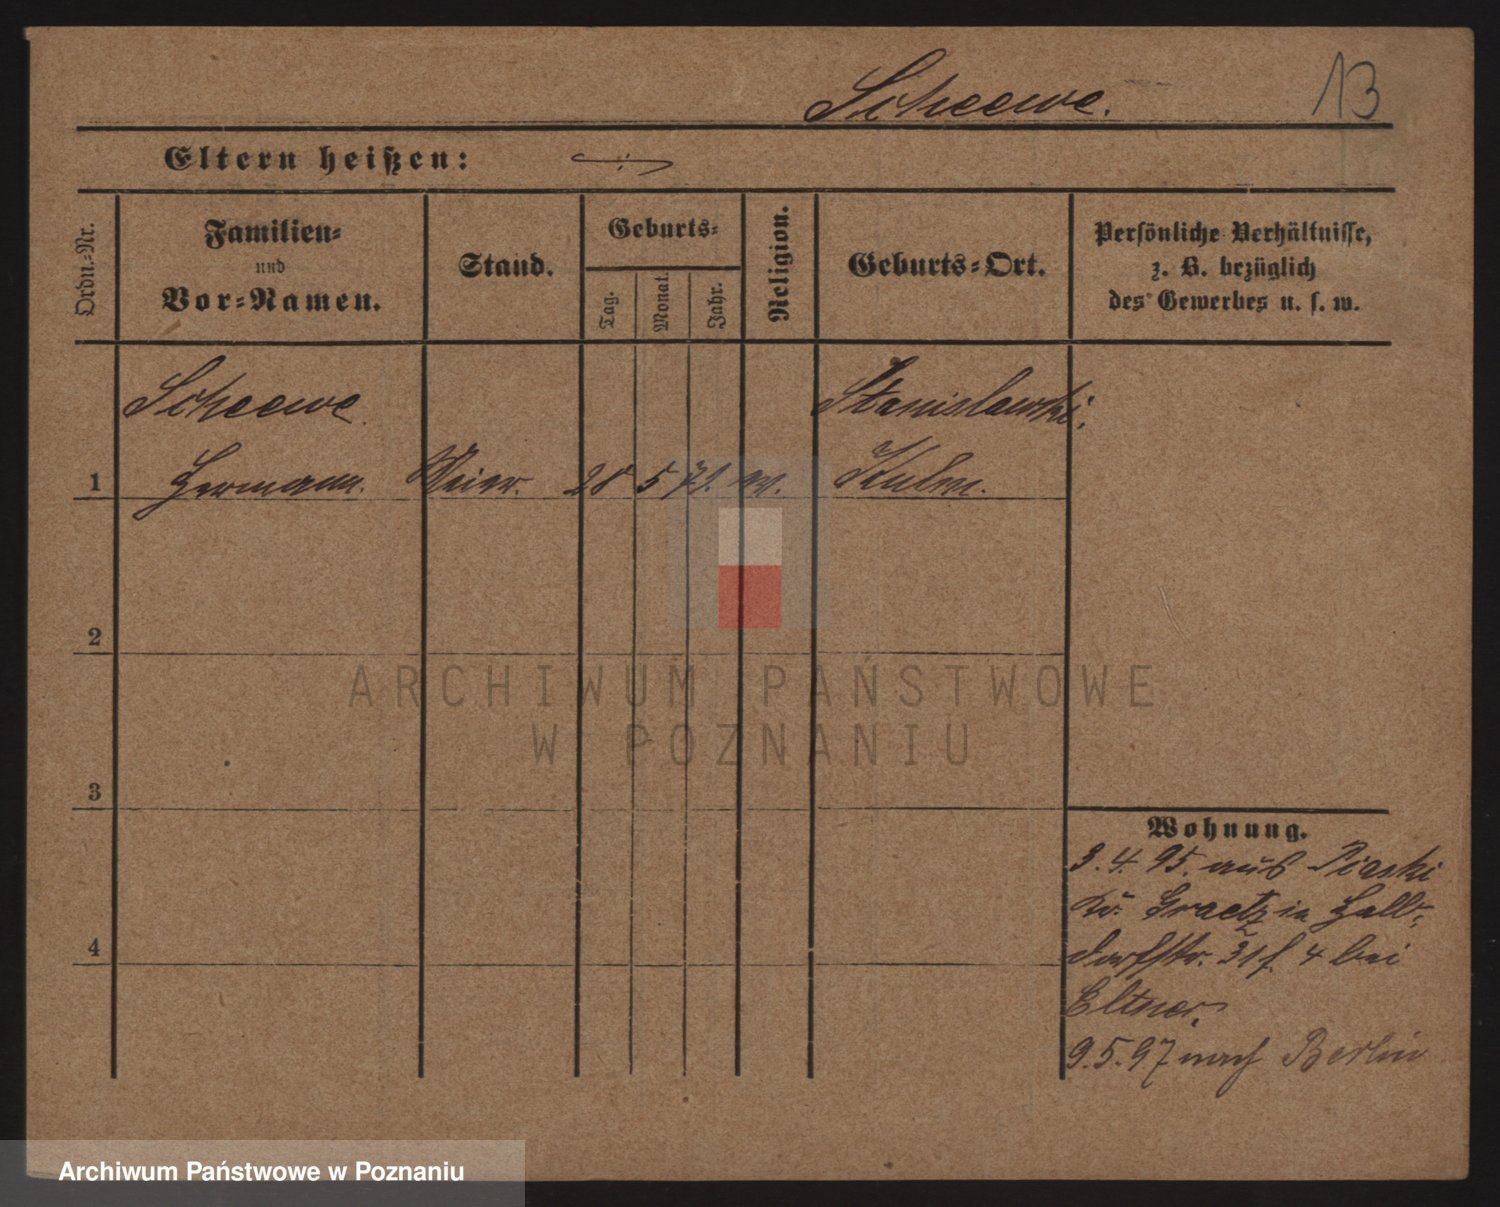 Scheewe. 13
Eltern heißen:
Ordn.-Nr.
Familien-
und
Vor-Namen.
Stand.
Geburts-
Tag.
Monat.
Jahr.
Religion.
Geburts-Ort.
Persönliche Verhältnisse,
z. B. bezüglich
des Gewerbes u. s. w.
Scheewe
Stanislawski,
1 Hermann. 28 5 71. ev. Kulm.
2
3
4
Wohnung.
3. 4. 95. aus Piaski
Kr. Graetz in Halb-
dorfstr. 31 4 bei
Eltner.
9. 5. 97 nach Berlin
ARCHIWUM PAŃSTWOWE
W POZNANIU
Archiwum Państwowe w Poznaniu